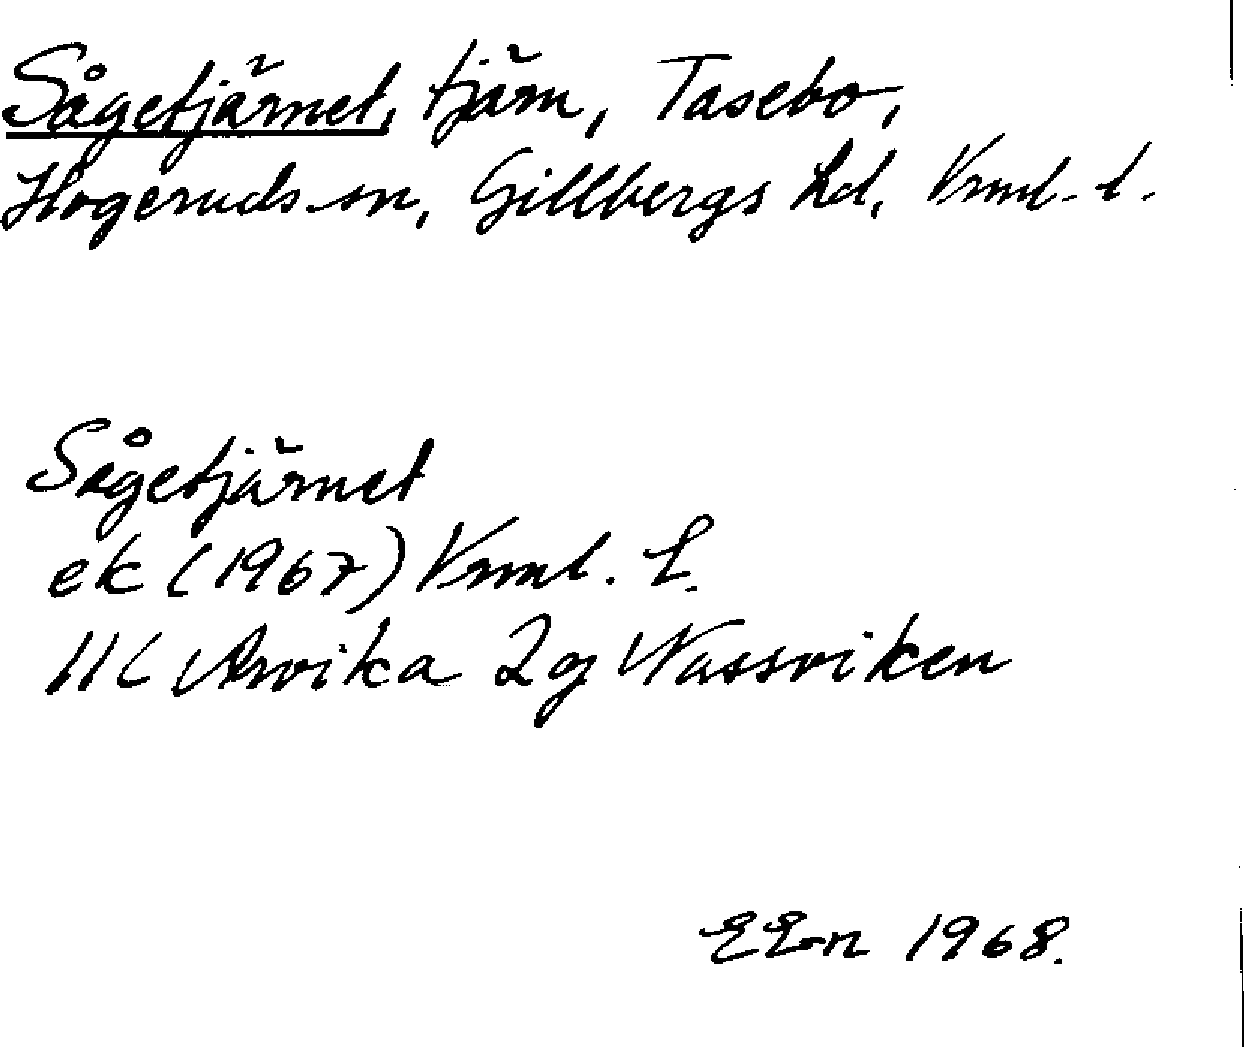 Sågetjärnet, tjärn, Tasebo,
Högeruds sn, Gillbergs hd, Vrml. l.
Sågetjärnet
ek (1967) Vrml. L.
11C Arvika 2g Nussviken
EEn 1968.